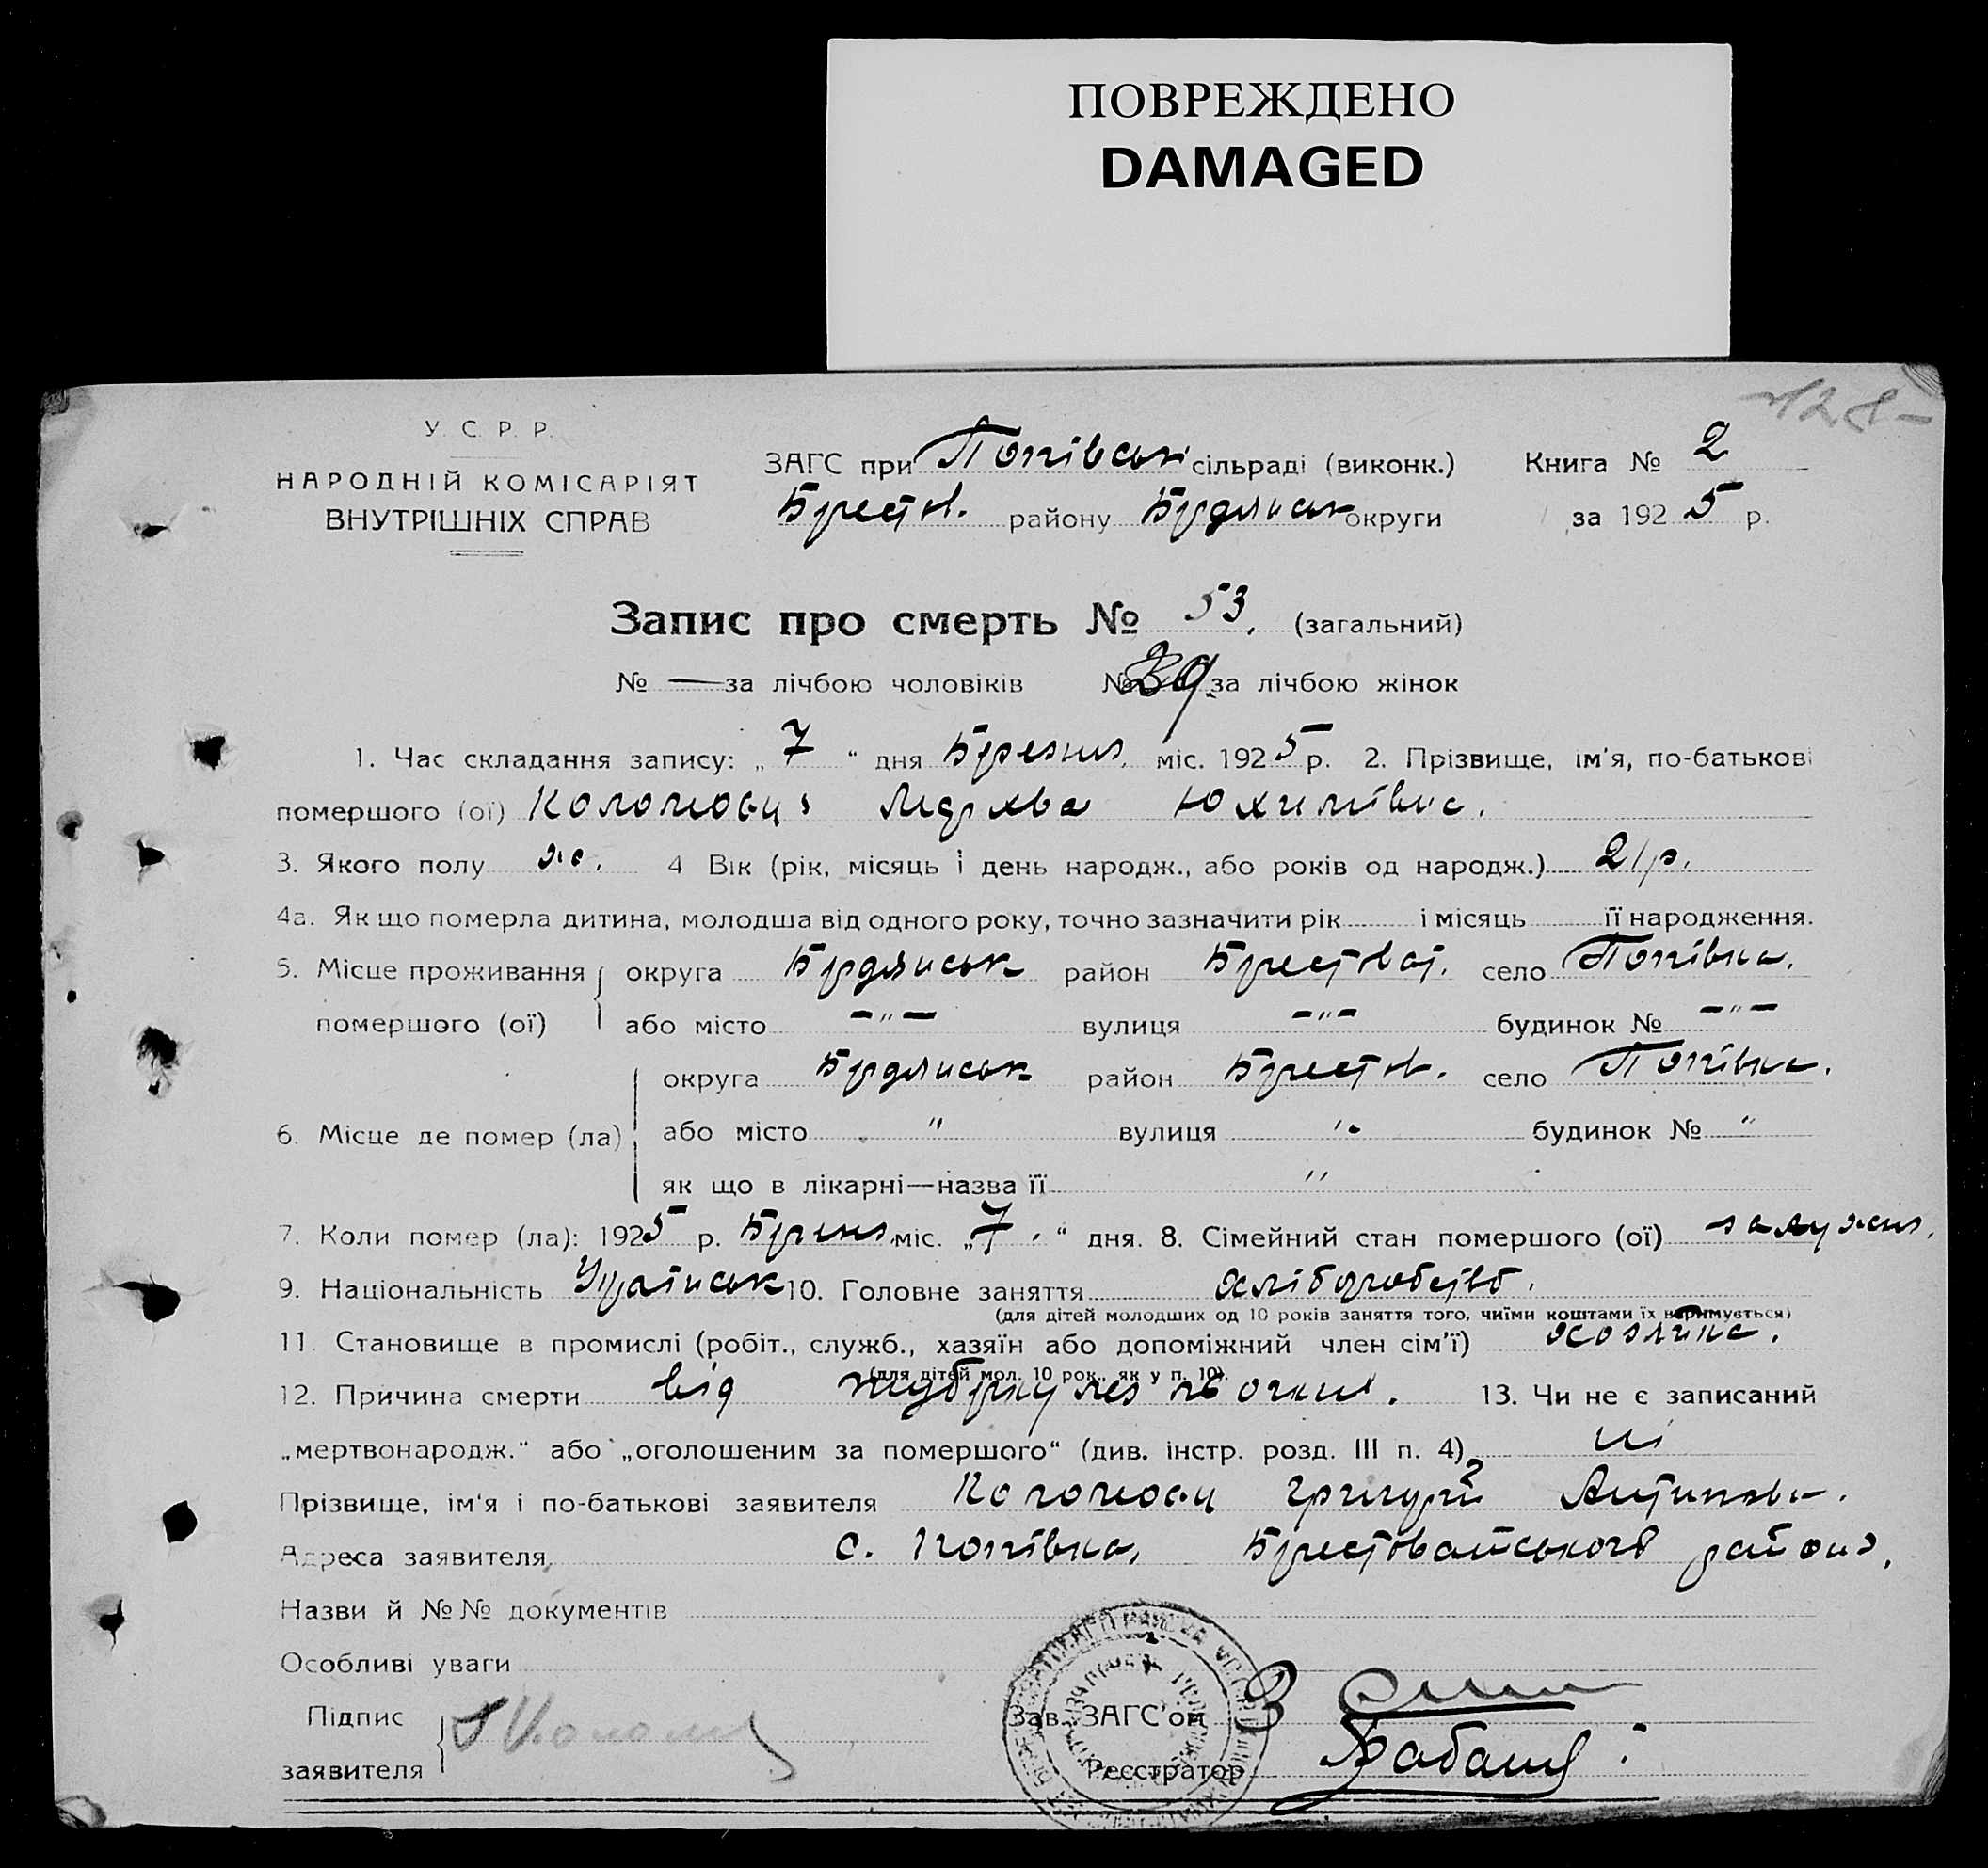 ПОВРЕЖДЕНО
DAMAGED
У. С. Р. Р.
НАРОДНІЙ КОМІСАРІЯТ
ВНУТРІШНІХ СПРАВ
ЗАГС при Попівськ сільраді (виконк.) Книга № 2
Брестов. району Бердянськ округи за 1925 р.
Запис про смерть № 53. (загальний)
№ — за лічбою чоловіків № за лічбою жінок
1. Час складання запису: „7“ дня Березня міс. 1925 р. 2. Прізвище, ім'я, по-батькові
помершого (ої) Коломоєць Юхимівна.
3. Якого полу ж. 4 Вік (рік, місяць і день народж., або років од народж.) 21 р.
4а. Як що померла дитина, молодша від одного року, точно зазначити рік і місяць її народження.
5. Місце проживання округа Бердянськ район Брестоват. село Попівка.
помершого (ої) або місто –"– вулиця –"– будинок № –"–
округа Бердянськ район Брестов. село Попівка.
6. Місце де помер (ла) або місто " вулиця " будинок № "
як що в лікарні—назва її "
7. Коли помер (ла): 1925 р. міс. „7.“ дня. 8. Сімейний стан помершого (ої) замужня.
9. Національність 10. Головне заняття хліборобство.
(для дітей молодших од 10 років заняття того, чиїми коштами їх вдержується)
11. Становище в промислі (робіт., служб., хазяїн або допоміжний член сім'ї) хозяїна.
(для дітей мол. 10 рок., як у п. 10).
12. Причина смерти від туберкульоз 13. Чи не є записаний
„мертвонародж.“ або „оголошеним за помершого“ (див. інстр. розд. III п. 4) ні
Прізвище, ім'я і по-батькові заявителя Коломоєць Григорій Антипов.
Адреса заявителя с. Попівка, Брестоватського району.
Назви й №№ документів
Особливі уваги
Підпис Зав. ЗАГС'ом
заявителя Реєстратор